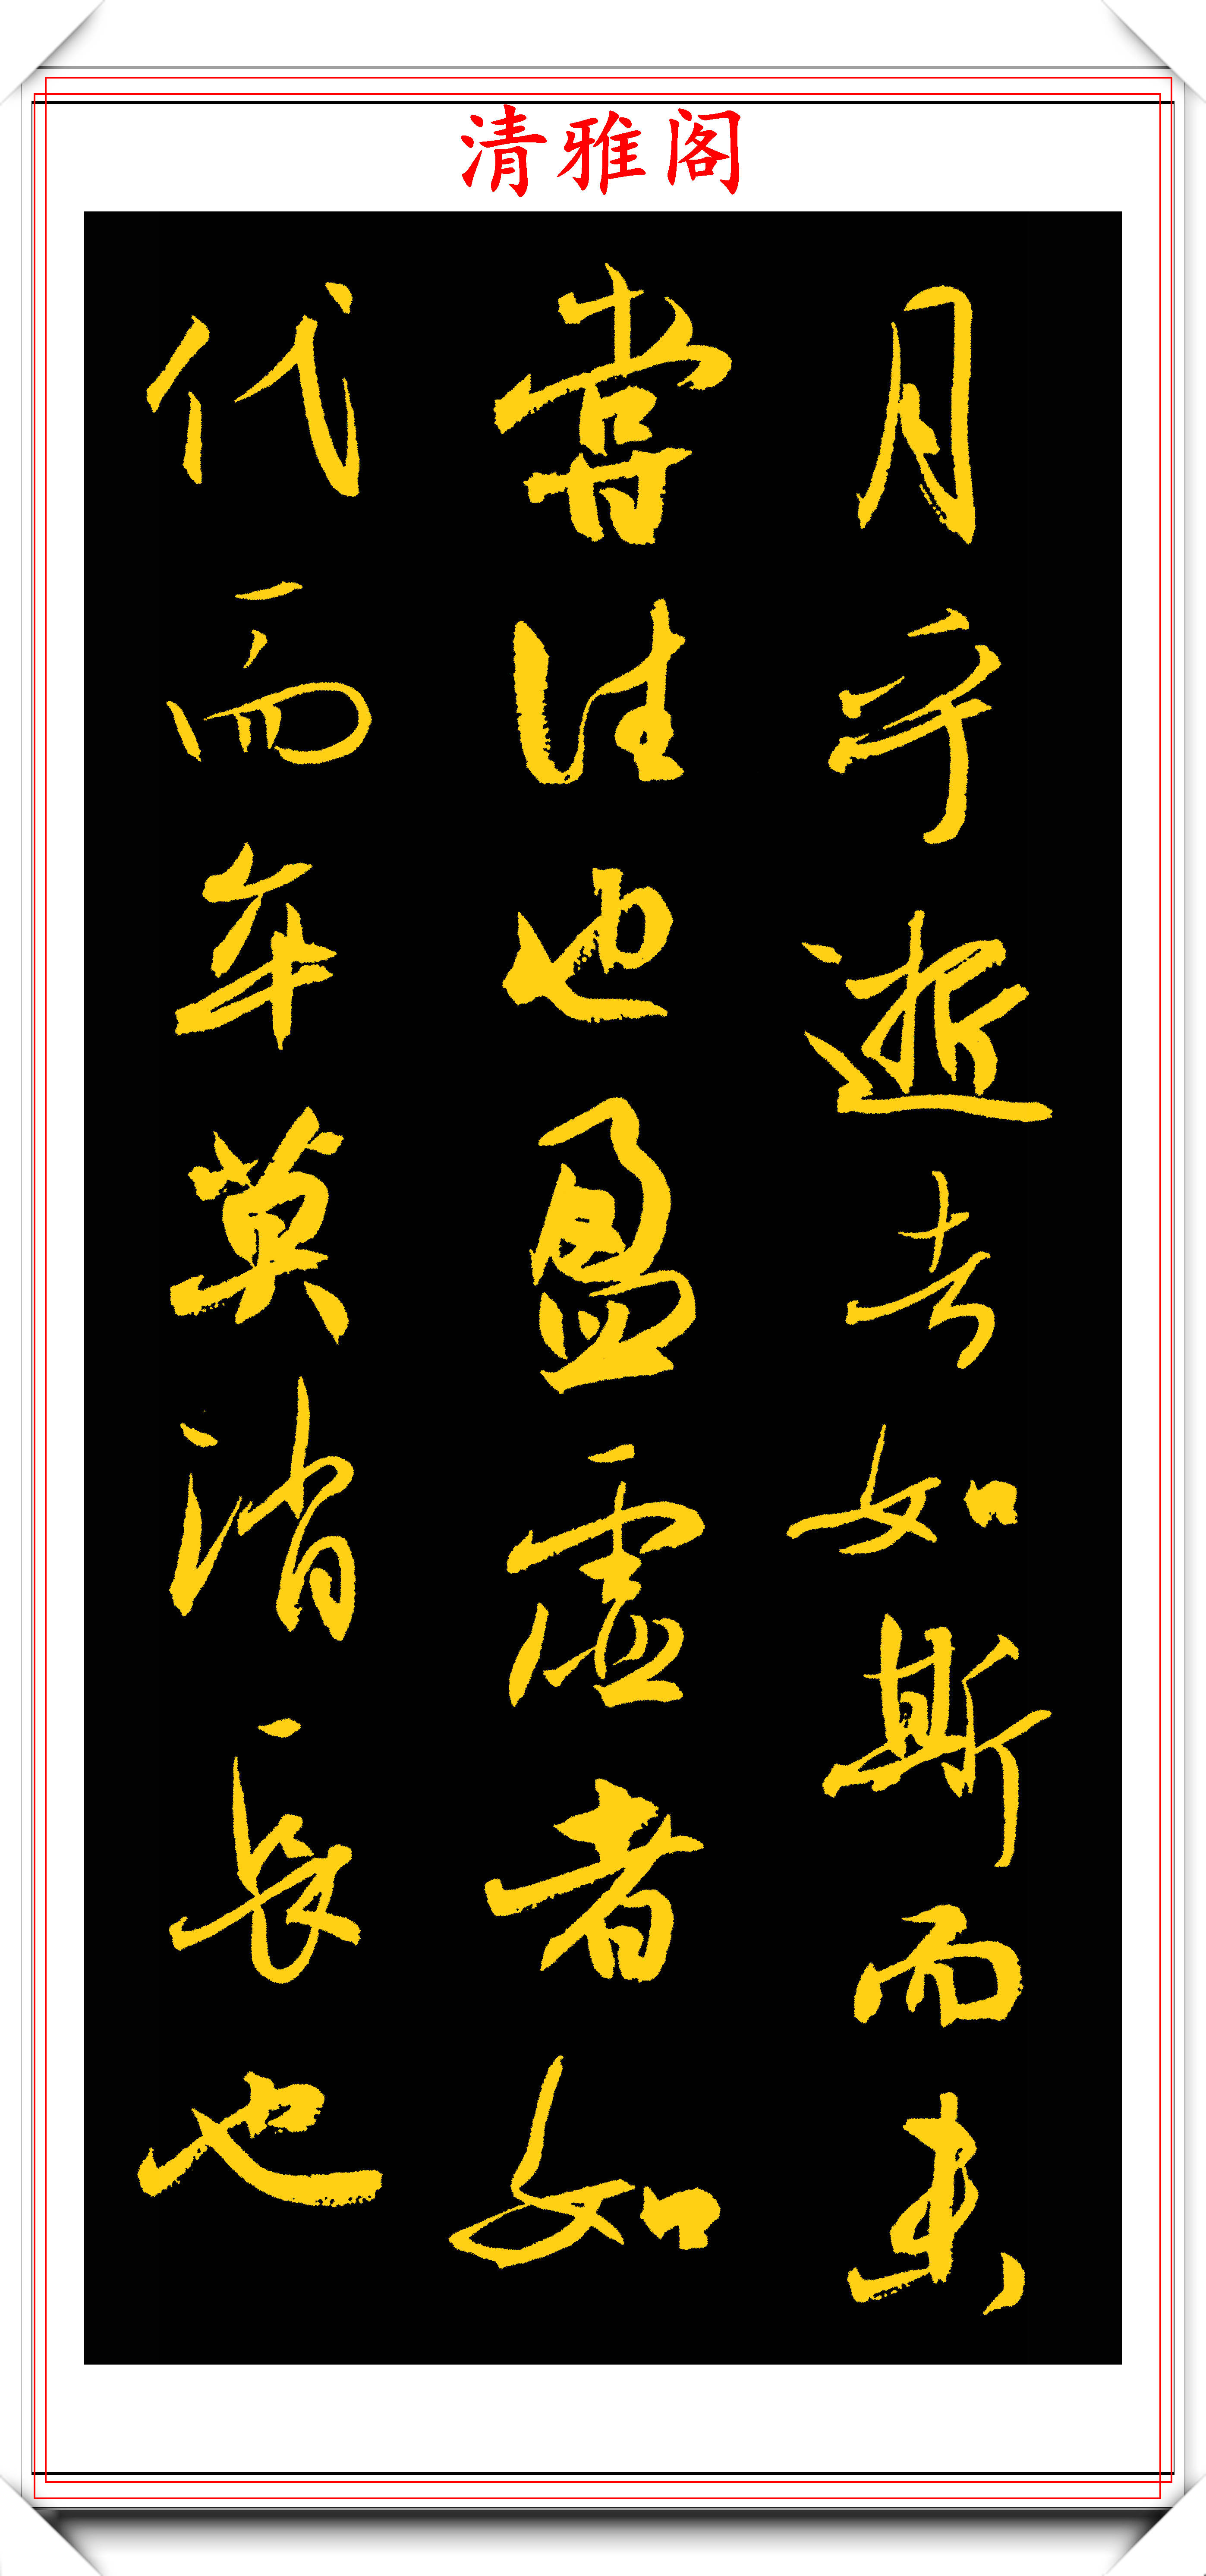 清雅阁
月乎逝者如斯而未
嘗往也盈虚者如
代而卒莫消長也